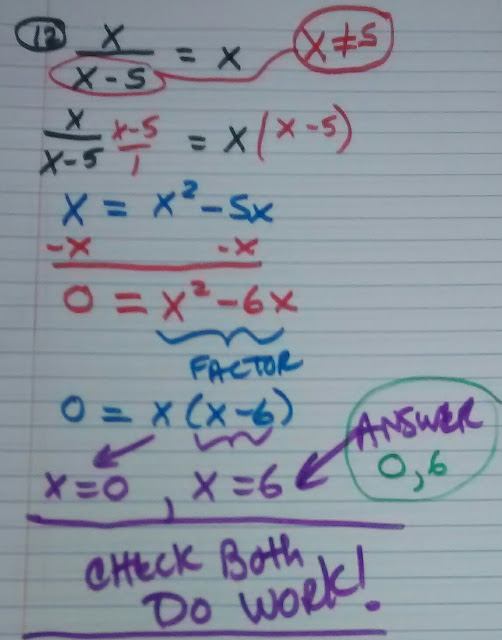 12 x/(x-5) = x x≠5
x/(x-5) (x-5)/1 = x(x-5)
x = x² - 5x
-x -x
0 = x² - 6x
FACTOR
0 = x(x-6)
x=0, x=6
ANSWER
0,6
CHECK Both
DO WORK!